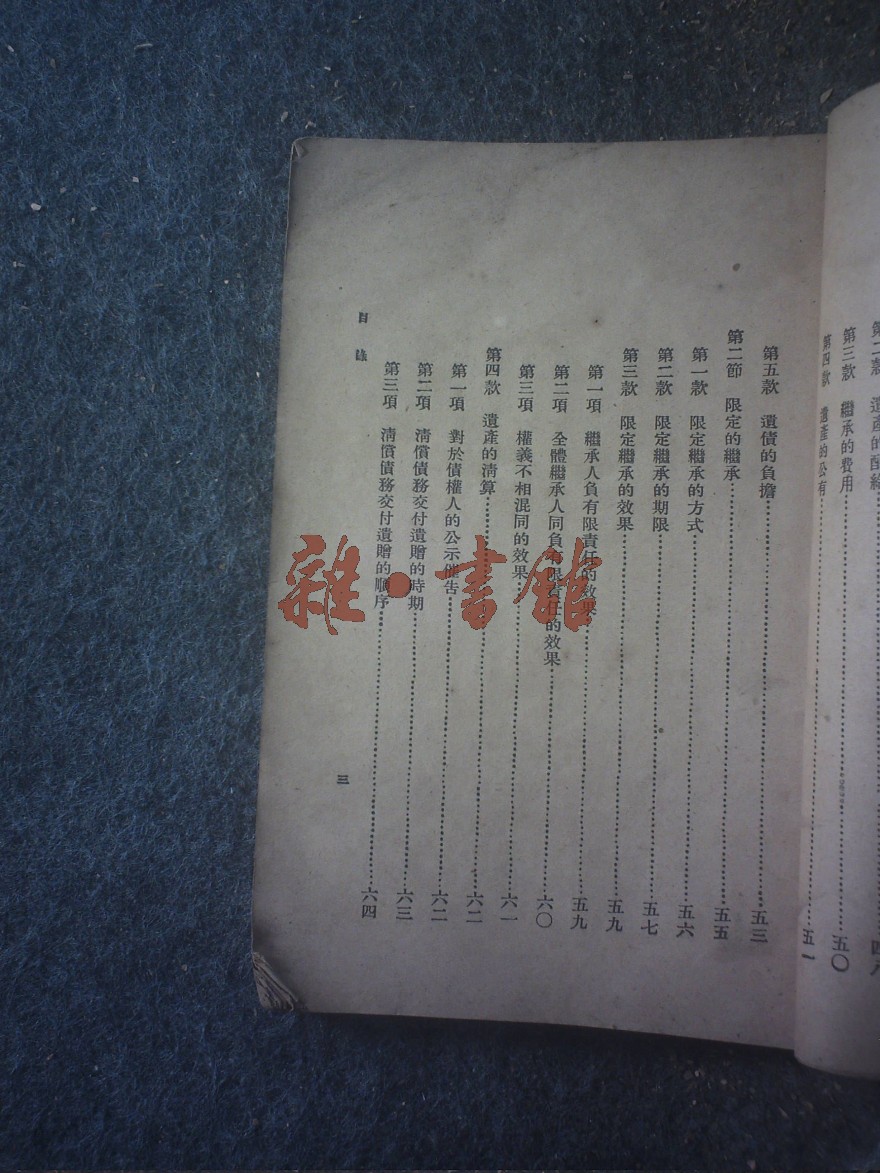 第三款　繼承的費用……五〇
第四款　遺產的公有……五一
第五款　遺債的負擔……五三
第二節　限定的繼承……五五
第一款　限定繼承的方式……五六
第二款　限定繼承的期限……五七
第三款　限定繼承的效果……五九
第一項　繼承人負有限責任的效果……五九
第二項　全體繼承人同負有限責任的效果……六〇
第三項　權義不相混同的效果……六一
第四款　遺產的清算……六二
第一項　對於債權人的公示催吿……六二
第二項　清償債務交付遺贈的時期……六三
第三項　清償債務交付遺贈的順序……六四
目錄
三
雜·書館